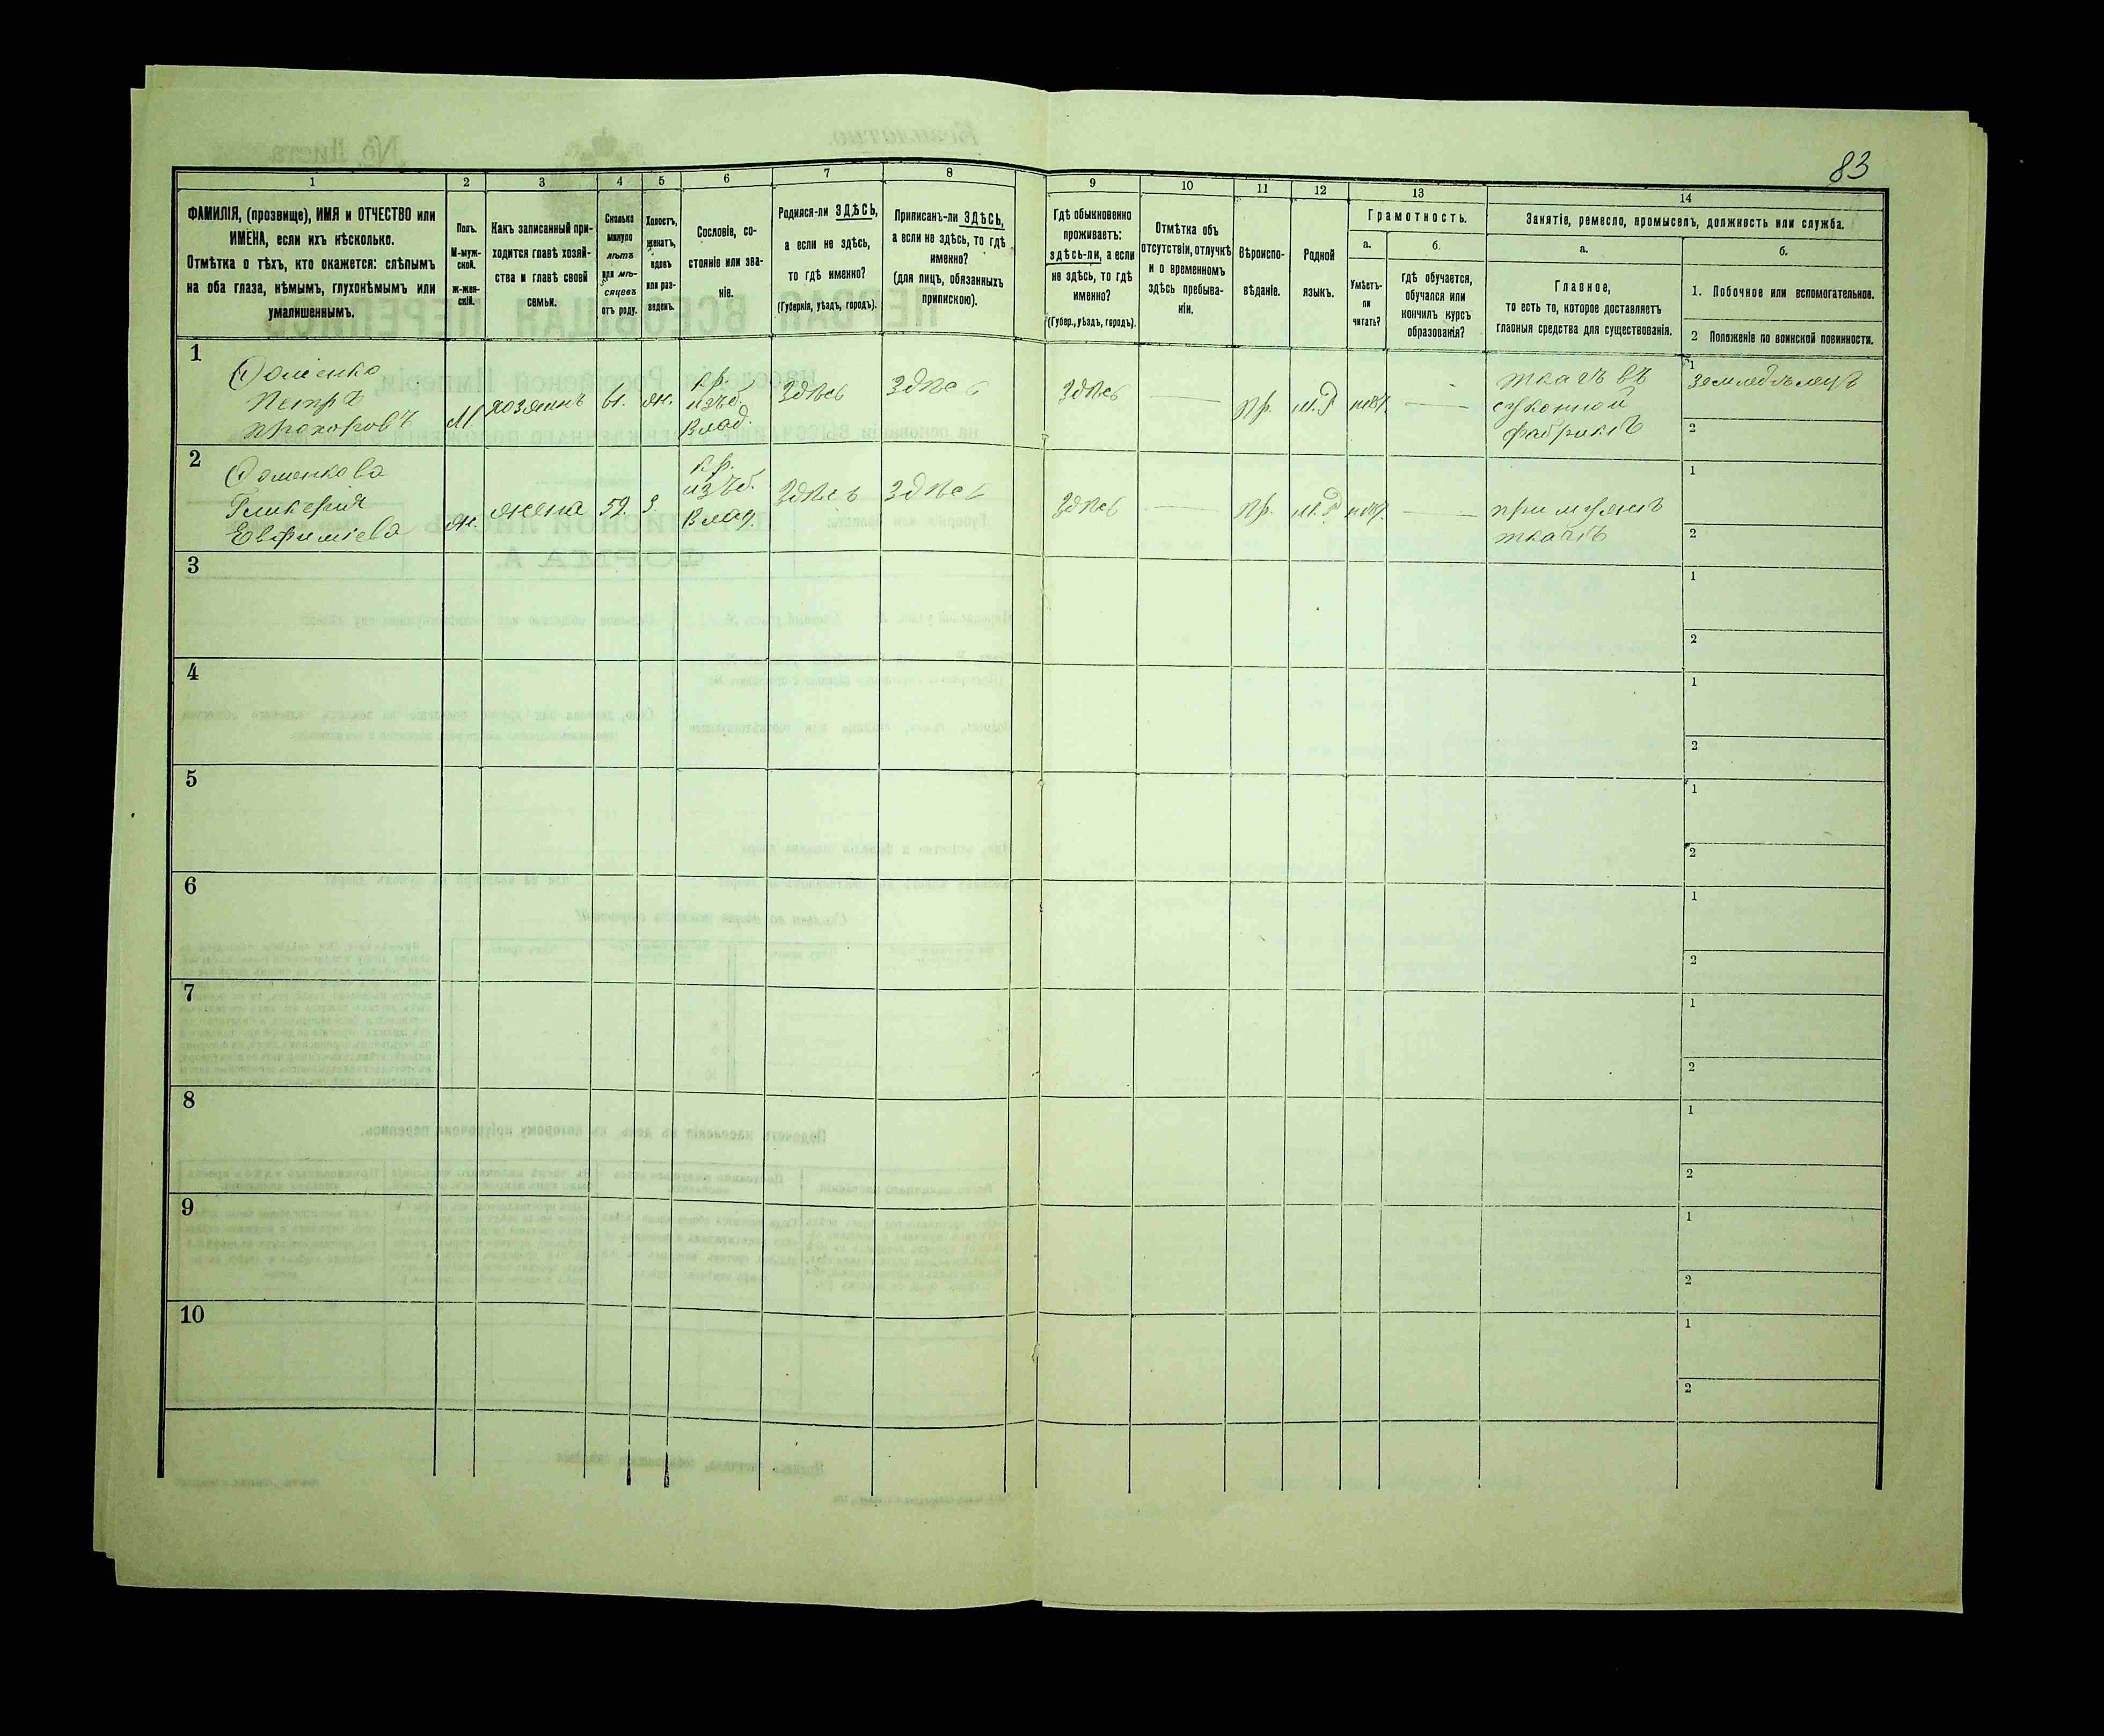 83
1
2
3
4
5
6
7
8
ФАМИЛІЯ, (прозвище), ИМЯ и ОТЧЕСТВО или
ИМЕНА, если ихъ нѣсколько.
Отмѣтка о тѣхъ, кто окажется: слѣпымъ
на оба глаза, нѣмымъ, глухонѣмымъ или
умалишеннымъ.
Полъ.
М-муж-
ской.
ж-жен-
скій.
Какъ записанный при-
ходится главѣ хозяй-
ства и главѣ своей
семьи.
Сколько
минуло
лѣтъ
или мѣ-
сяцевъ
отъ роду.
Холостъ,
женатъ,
вдовъ
или раз-
веденъ.
Сословіе, со-
стояніе или зва-
ніе.
Родился-ли ЗДѢСЬ,
а если не здѣсь,
то гдѣ именно?
(Губернія, уѣздъ, городъ).
Приписанъ-ли ЗДѢСЬ,
а если не здѣсь, то гдѣ
именно?
(для лицъ, обязанныхъ
припискою).
9
10
11
12
13
14
Гдѣ обыкновенно
проживаетъ:
здѣсь-ли, а если
не здѣсь, то гдѣ
именно?
(Губер., уѣздъ, городъ).
Отмѣтка объ
отсутствіи, отлучкѣ
и о временномъ
здѣсь пребыва-
ніи.
Вѣроиспо-
вѣданіе.
Родной
языкъ.
Грамотность.
а.
б.
Умѣетъ-
ли
читать?
гдѣ обучается,
обучался или
кончилъ курсъ
образованія?
Занятіе, ремесло, промыселъ, должность или служба.
а.
б.
Главное,
то есть то, которое доставляетъ
главныя средства для существованія.
1. Побочное или вспомогательное.
2 Положеніе по воинской повинности.
1
Фоменко
Петръ
Прохоровъ
М.
хозяинъ
61.
ж.
кр.
изъ б.
Влад.
Здѣсь
Здѣсь
Здѣсь
—
пр.
м.Р
—
ткачъ въ
суконной
фабрикѣ
1
земледѣлецъ
2
2
Фоменкова
Гликерія
Евфиміева
ж.
жена
59.
З.
кр.
изъ б.
Влад.
Здѣсь
Здѣсь
Здѣсь
—
пр.
м.Р
—
при мужѣ
ткачѣ
1
2
3
1
2
4
1
2
5
1
2
6
1
2
7
1
2
8
1
2
9
1
2
10
1
2